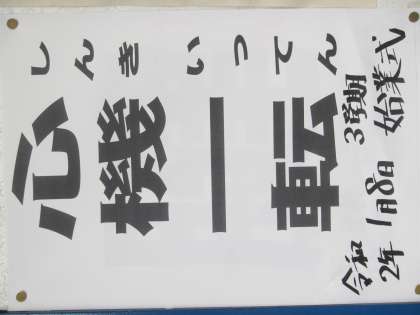 心機一転
しんきいってん
令和
2年
1月8日
3学期
始業式